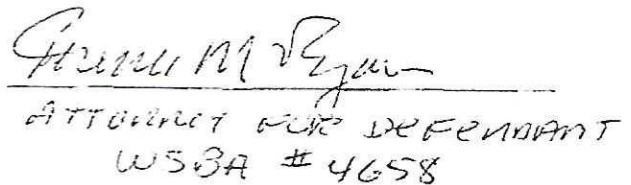 M Ryan
ATTORNEY FOR DEFENDANT
WSBA # 4658